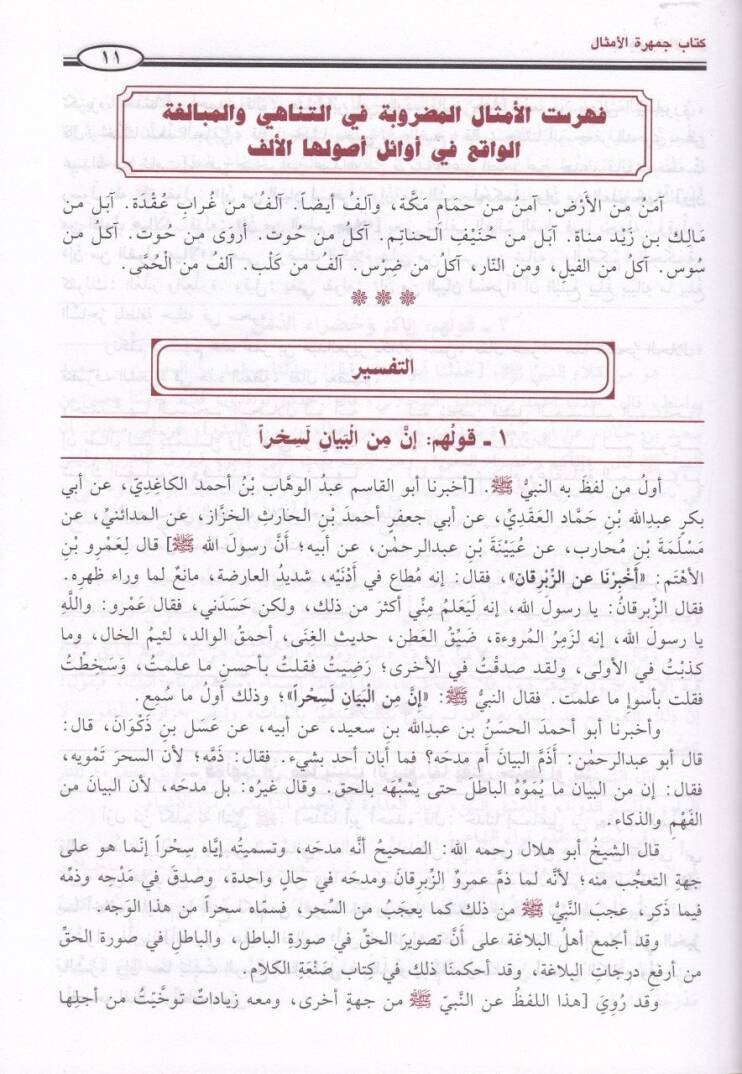 كتاب جمهرة الأمثال
١١
فهرست الأمثال المضروبة في التناهي والمبالغة
الواقع في أوائل أصولها الألف
آمَنُ من الأَرْض. آمنُ من حمَامِ مَكّة، وآلفُ أيضاً. آلفُ من غُرابِ عُقْدَة. آبَلُ من
مَالِك بن زَيْد مناة. آبَل من حُنَيْفِ الحناتِم. آكلُ من حُوت. أروَى مِن حُوت. آكلُ من
سُوس. آكلُ من الفيل، ومن النّار، آكلُ من ضِرْس. آلفُ من كَلْب. آلفُ من الْحُمَّى.
التفسير
١ ـ قولُهم: إنَّ مِن الْبَيانِ لَسِحْراً
أولُ من لفظَ به النبيُّ ﷺ. [أخبرنا أبو القاسم عبدُ الوهَّاب بْنُ أحمد الكاغدِيّ، عن أبي
بكرِ عبدِالله بْنِ حَمَّاد العَقَديِّ، عن أبي جعفرٍ أحمدَ بْنِ الحَارثِ الخزَّاز، عن المدائنيِّ، عن
مَسْلَمَةَ بْنِ مُحارب، عن عُيَيْنَةَ بْنِ عبدالرحمٰن، عن أبيه؛ أنَّ رسولَ الله ﷺ] قال لِعَمْرو بْنِ
الأهْتَم: «أَخْبِرْنَا عن الزِّبْرِقان»، فقال: إنه مُطاع في أَدْنَيْه، شديدُ العارضة، مانعٌ لما وراء ظهرِه.
فقال الزِّبرقانُ: يا رسولَ الله، إنه لَيَعلمُ مِنِّي أكثرَ من ذلك، ولكن حَسَدَني، فقال عَمْرو: واللَّهِ
يا رسولَ الله، إنه لزَمِرُ المُروءة، ضَيِّقُ العطَن، حديث الغِنَى، أحمقُ الوالد، لئيمُ الخال، وما
كذبْتُ في الأولى، ولقد صدقْتُ في الأخرى؛ رَضِيتُ فقلتُ بأحسنِ ما علمتُ، وَسَخِطْتُ
فقلت بأسوإ ما علمت. فقال النبيُّ ﷺ: «إنَّ مِن الْبَيانِ لَسِحْراً»؛ وذلك أولُ ما سُمِع.
وأخبرنا أبو أحمدَ الحسَنُ بن عبدِالله بنِ سعيد، عن أبيه، عن عَسَل بنِ ذَكْوَانَ، قال:
قال أبو عبدالرحمٰن: أذَمَّ البيانَ أم مدحَه؟ فما أبان أحد بشيء. فقال: ذَمَّه؛ لأن السحرَ تَمْويه،
فقال: إن من البيَان ما يُمَوِّهُ الباطلَ حتى يشبِّهَه بالحق. وقال غيرُه: بل مدحَه، لأن البيانَ من
الفَهْم والذكاء.
قال الشيخُ أبو هلال رحمه الله: الصحيحُ أنَّه مدحَه، وتسميتُه إيَّاه سِحْراً إنما هو على
جهةِ التعجُّب منه؛ لأنَّه لما ذمَّ عمروٌ الزِّبرقانَ ومدحَه في حالٍ واحدة، وصدقَ في مَدْحِه وذمِّه
فيما ذكَر، عجبَ النَّبي ﷺ من ذلك كما يعجَبُ من السِّحر، فسمّاه سحراً من هذا الوَجه.
وقد أجمعَ أهلُ البلاغة على أنَّ تصويرَ الحقِّ في صورةِ الباطل، والباطلِ في صورة الحقِّ
من أرفعِ درجاتِ البلاغة، وقد أحكمنَا ذلك في كِتاب صَنْعَةِ الكلام.
وقد رُوِيَ [هذا اللفظُ عن النَّبيّ ﷺ من جهةٍ أخرى، ومعه زياداتٌ توخَّيْتُ من أجلِها